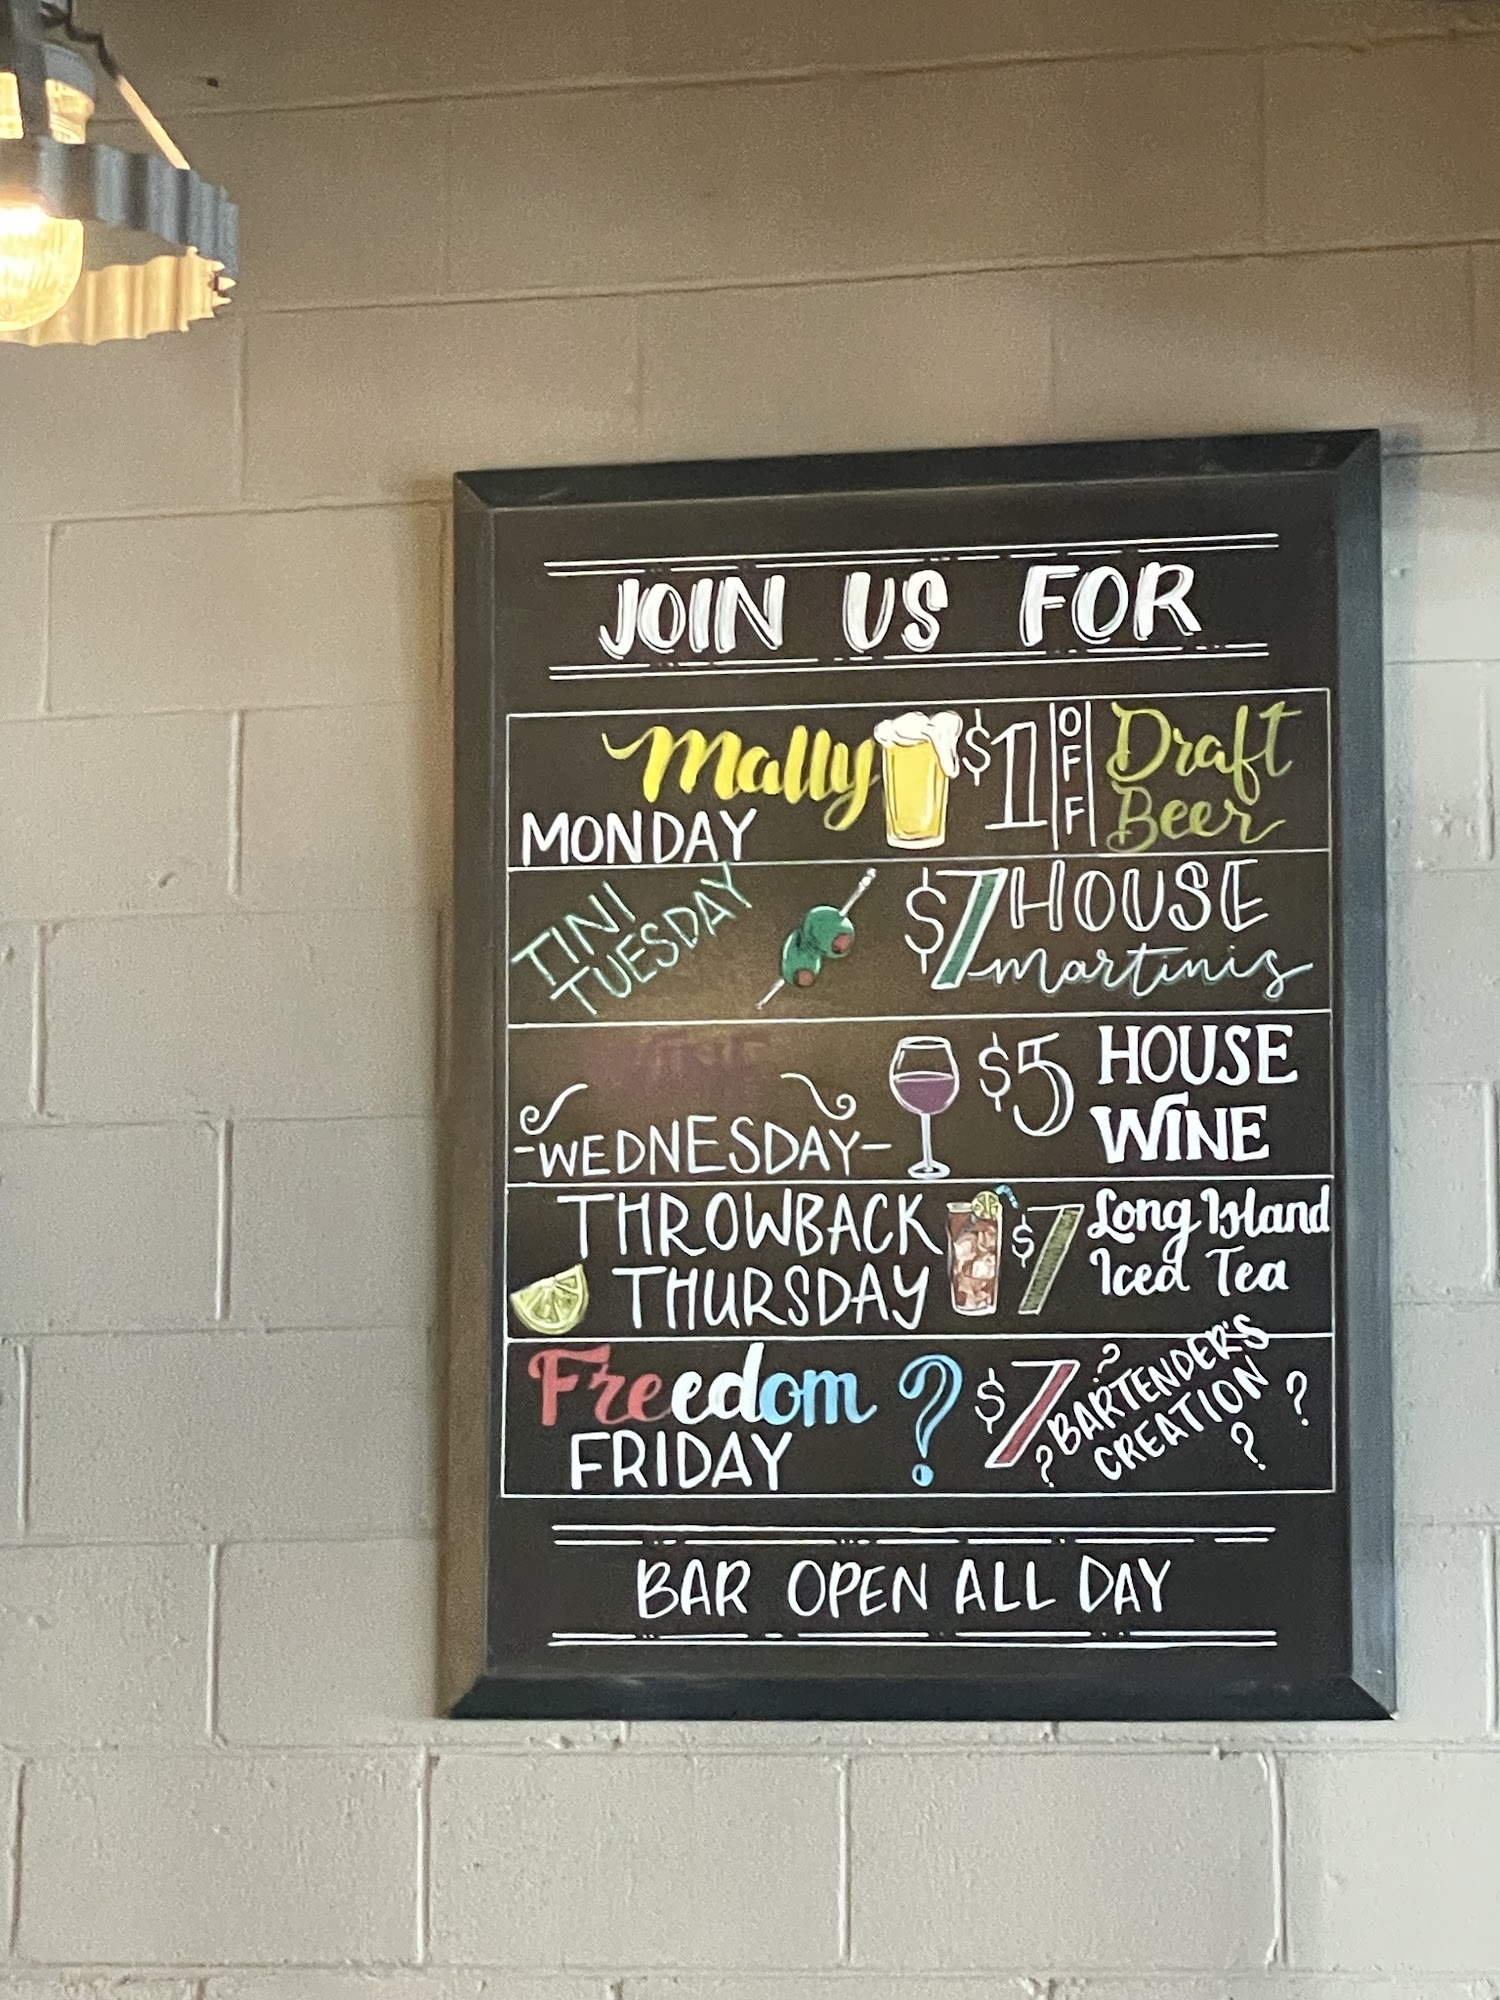 JOIN US FOR
Mally
MONDAY
$1 OFF
Draft
Beer
TINI
TUESDAY
$7 HOUSE
martinis
WINE
-WEDNESDAY-
$5
HOUSE
WINE
THROWBACK
THURSDAY
$7
Long Island
Iced Tea
Freedom
FRIDAY
?
$7
? BARTENDER'S
CREATION
? ? ?
BAR OPEN ALL DAY